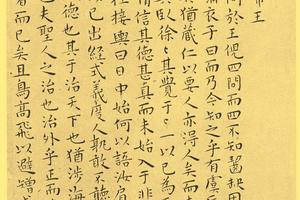 帝王
問於王倪四問而四不知齧缺因
蒲衣子曰而乃今知之乎有虞
猶藏仁以要人亦得人矣而
其臥徐〻其覺于〻一以己為
情信其德甚真而未始入于非
狂接輿曰日中始何以語汝肩
以己出經式義度人孰敢不聽
德也其于治天下也猶涉海
夫聖人之治也治外乎正而
者而已矣且鳥高飛以避矰